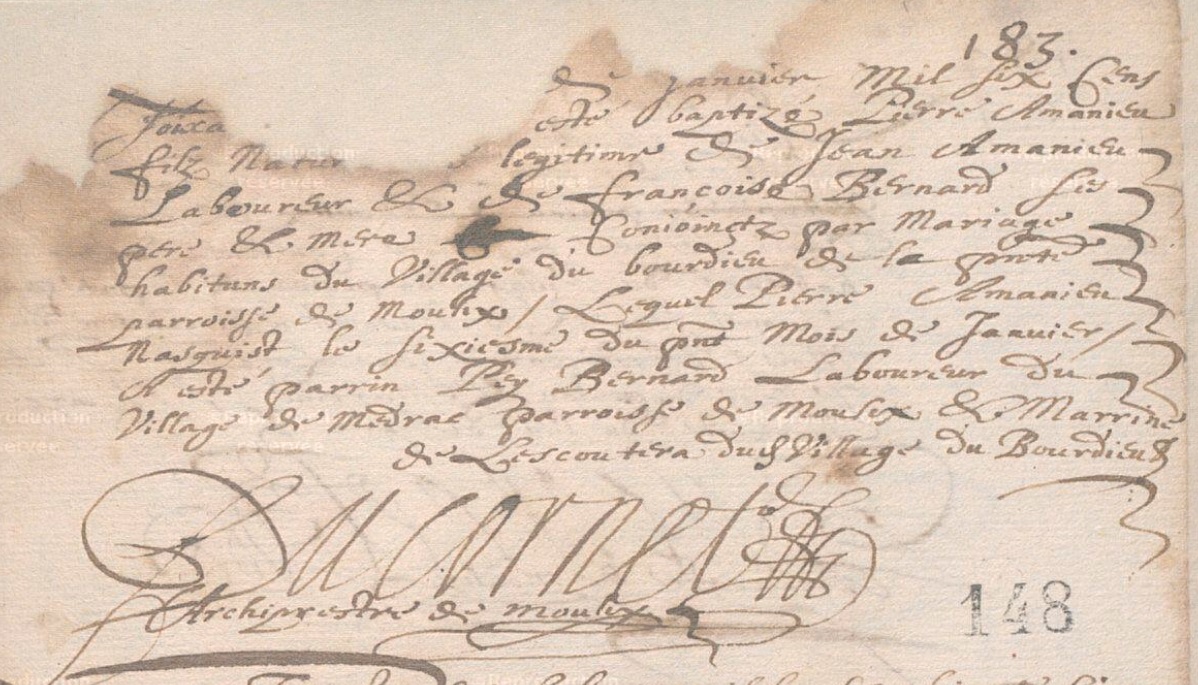 183.
de janvier Mil six Cens
Joura esté baptizé Pierre Amanieu
filz Natur legitime de Jean Amanieu
Laboureur & de françoise Bernard ses
pere & mere Conjoinctz par Mariage
habitans du Village du bourdieu de la pnte
parroisse de Moulix / Lequel Pierre Amanieu
Nasquist le sixiesme du pnt Mois de Janvier /
A esté parrin Pey Bernard Laboureur du
Village de Medrac parroisse de Moulix & Marrine
de Lescoutera dud Village du Bourdieu
Ducarnet
Archiprestre de moulix
148